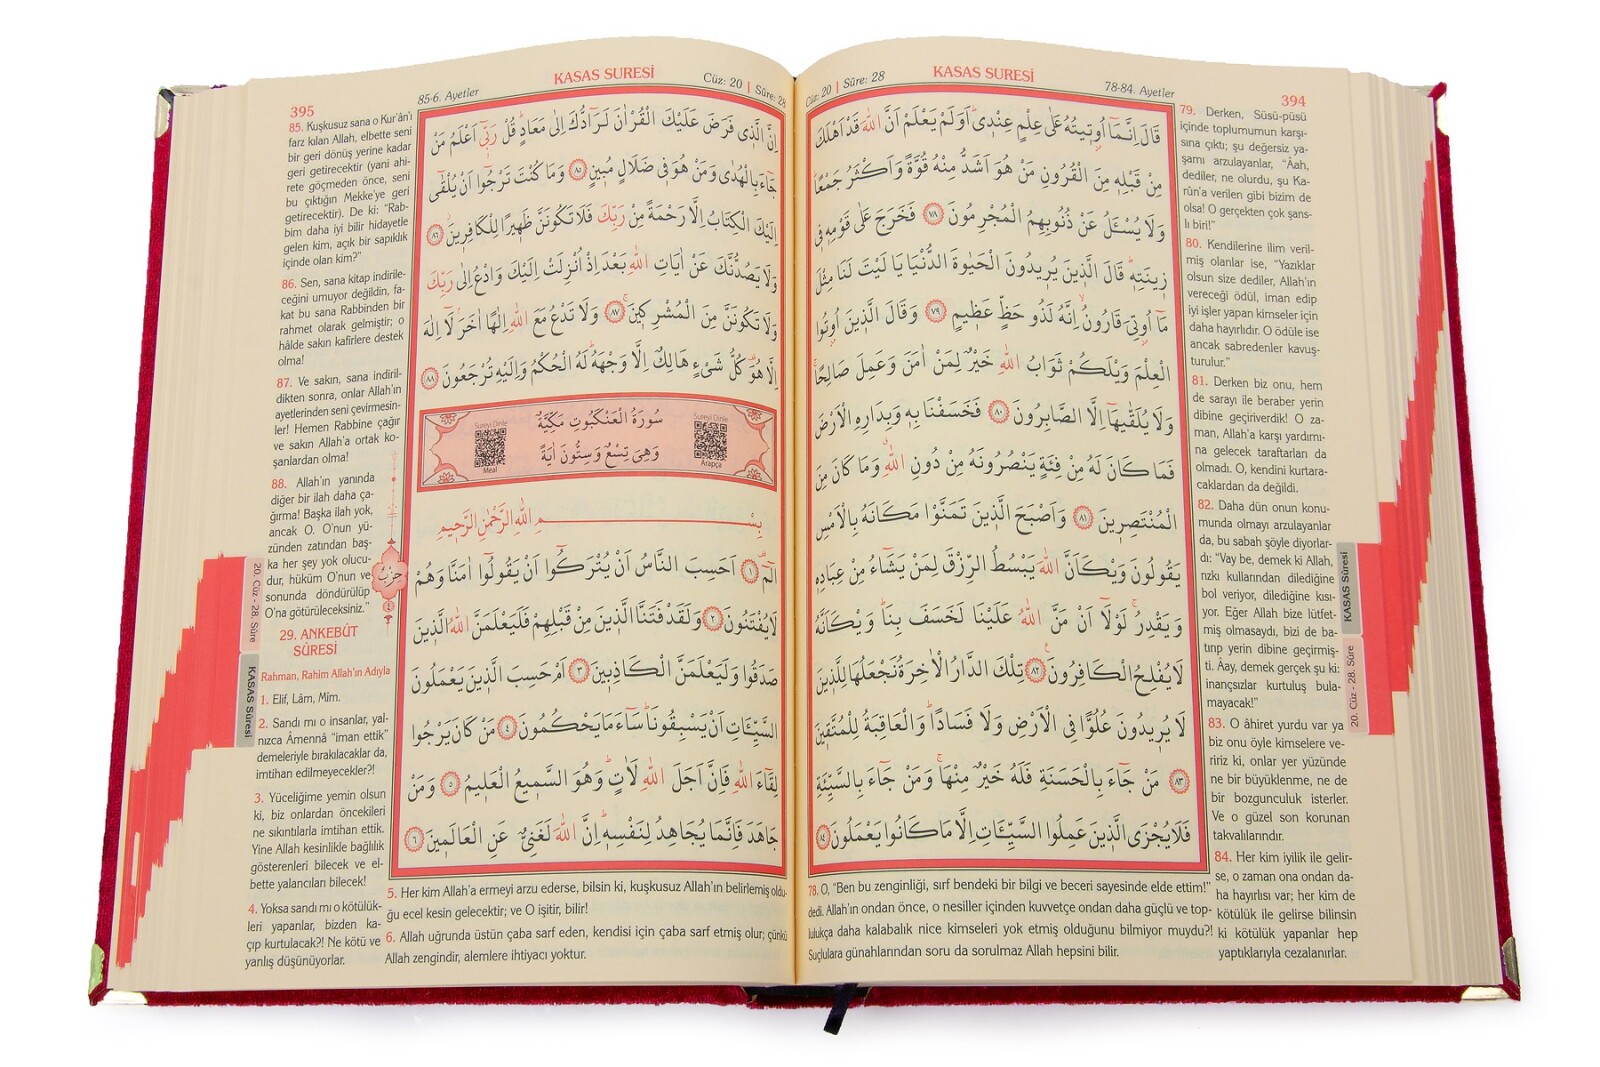 394
KASAS SURESİ
Cüz: 20 | Sûre: 28
78-84. Ayetler
قَالَ اِنَّمَٓا اُو۫ت۪يتُهُ عَلٰى عِلْمٍ عِنْد۪يۜ اَوَلَمْ يَعْلَمْ اَنَّ اللّٰهَ قَدْ اَهْلَكَ
مِنْ قَبْلِه۪ مِنَ الْقُرُونِ مَنْ هُوَ اَشَدُّ مِنْهُ قُوَّةً وَاَكْثَرُ جَمْعًاۜ
وَلَا يُسْـَٔلُ عَنْ ذُنُوبِهِمُ الْمُجْرِمُونَ ﴿٧٨﴾ فَخَرَجَ عَلٰى قَوْمِه۪ ف۪ي
ز۪ينَتِه۪ۜ قَالَ الَّذ۪ينَ يُر۪يدُونَ الْحَيٰوةَ الدُّنْيَا يَا لَيْتَ لَنَا مِثْلَ
مَٓا اُو۫تِيَ قَارُونُۙ اِنَّهُ لَذُو حَظٍّ عَظ۪يمٍ ﴿٧٩﴾ وَقَالَ الَّذ۪ينَ اُو۫تُوا
الْعِلْمَ وَيْلَكُمْ ثَوَابُ اللّٰهِ خَيْرٌ لِمَنْ اٰمَنَ وَعَمِلَ صَالِحًاۚ
وَلَا يُلَقّٰيهَٓا اِلَّا الصَّابِرُونَ ﴿٨٠﴾ فَخَسَفْنَا بِه۪ وَبِدَارِهِ الْاَرْضَ
فَمَا كَانَ لَهُ مِنْ فِئَةٍ يَنْصُرُونَهُ مِنْ دُونِ اللّٰهِۗ وَمَا كَانَ مِنَ
الْمُنْتَصِر۪ينَ ﴿٨١﴾ وَاَصْبَحَ الَّذ۪ينَ تَمَنَّوْا مَكَانَهُ بِالْاَمْسِ
يَقُولُونَ وَيْكَاَنَّ اللّٰهَ يَبْسُطُ الرِّزْقَ لِمَنْ يَشَٓاءُ مِنْ عِبَادِه۪
وَيَقْدِرُۚ لَوْلَٓا اَنْ مَنَّ اللّٰهُ عَلَيْنَا لَخَسَفَ بِنَاۜ وَيْكَاَنَّهُ
لَا يُفْلِحُ الْكَافِرُونَ ﴿٨٢﴾ تِلْكَ الدَّارُ الْاٰخِرَةُ نَجْعَلُهَا لِلَّذ۪ينَ
لَا يُر۪يدُونَ عُلُوًّا فِي الْاَرْضِ وَلَا فَسَادًاۜ وَالْعَاقِبَةُ لِلْمُتَّق۪ينَ
﴿٨٣﴾ مَنْ جَٓاءَ بِالْحَسَنَةِ فَلَهُ خَيْرٌ مِنْهَاۚ وَمَنْ جَٓاءَ بِالسَّيِّئَةِ
فَلَا يُجْزَى الَّذ۪ينَ عَمِلُوا السَّيِّـَٔاتِ اِلَّا مَا كَانُوا يَعْمَلُونَ ﴿٨٤﴾
78. O, “Ben bu zenginliği, sırf bendeki bir bilgi ve beceri sayesinde elde ettim!”
dedi. Allah'ın ondan önce, o nesiller içinden kuvvetçe ondan daha güçlü ve top-
lulukça daha kalabalık nice kimseleri yok etmiş olduğunu bilmiyor muydu?!
Suçlulara günahlarından soru da sorulmaz Allah hepsini bilir.
79. Derken, Süsü-püsü
içinde toplumumun karşı-
sına çıktı; şu değersiz ya-
şamı arzulayanlar, “Aah,
dediler, ne olurdu, şu Ka-
rûn'a verilen gibi bizim de
olsa! O gerçekten çok şans-
lı biri!”
80. Kendilerine ilim veril-
miş olanlar ise, “Yazıklar
olsun size dediler, Allah'ın
vereceği ödül, iman edip
iyi işler yapan kimseler için
daha hayırlıdır. O ödüle ise
ancak sabredenler kavuş-
turulur.”
81. Derken biz onu, hem
de sarayı ile beraber yerin
dibine geçiriverdik! O za-
man, Allah'a karşı yardımı-
na gelecek taraftarları da
olmadı. O, kendini kurtara-
caklardan da değildi.
82. Daha dün onun konu-
munda olmayı arzulayanlar
da, bu sabah şöyle diyorlar-
dı: “Vay be, demek ki Allah,
rızkı kullarından dilediğine
bol veriyor, dilediğine kısı-
yor. Eğer Allah bize lütfet-
miş olmasaydı, bizi de ba-
tırıp yerin dibine geçirmiş-
ti. Âay, demek gerçek şu ki:
inançsızlar kurtuluş bula-
mayacak!”
83. O âhiret yurdu var ya
biz onu öyle kimselere ve-
ririz ki, onlar yer yüzünde
ne bir büyüklenme, ne de
bir bozgunculuk isterler.
Ve o güzel son korunan
takvalılarındır.
84. Her kim iyilik ile gelir-
se, o zaman ona ondan da-
ha hayırlısı var; her kim de
kötülük ile gelirse bilinsin
ki kötülük yapanlar hep
yaptıklarıyla cezalanırlar.
KASAS Sûresi
20. Cüz - 28. Sûre
395
KASAS SURESİ
Cüz: 20 | Sûre: 28
85-6. Ayetler
اِنَّ الَّذ۪ي فَرَضَ عَلَيْكَ الْقُرْاٰنَ لَرَٓادُّكَ اِلٰى مَعَادٍۜ قُلْ رَبّ۪ٓي اَعْلَمُ مَنْ
جَٓاءَ بِالْهُدٰى وَمَنْ هُوَ ف۪ي ضَلَالٍ مُب۪ينٍ ﴿٨٥﴾ وَمَا كُنْتَ تَرْجُٓوا اَنْ يُلْقٰٓى
اِلَيْكَ الْكِتَابُ اِلَّا رَحْمَةً مِنْ رَبِّكَ فَلَا تَكُونَنَّ ظَه۪يرًا لِلْكَافِر۪ينَۘ ﴿٨٦﴾
وَلَا يَصُدُّنَّكَ عَنْ اٰيَاتِ اللّٰهِ بَعْدَ اِذْ اُنْزِلَتْ اِلَيْكَ وَادْعُ اِلٰى رَبِّكَ
وَلَا تَكُونَنَّ مِنَ الْمُشْرِك۪ينَۚ ﴿٨٧﴾ وَلَا تَدْعُ مَعَ اللّٰهِ اِلٰهًا اٰخَرَۢ لَٓا اِلٰهَ
اِلَّا هُوَ۠ كُلُّ شَيْءٍ هَالِكٌ اِلَّا وَجْهَهُۜ لَهُ الْحُكْمُ وَاِلَيْهِ تُرْجَعُونَ ﴿٨٨﴾
سُورَةُ الْعَنْكَبُوتِ مَكِّيَّةٌ
وَهِيَ تِسْعٌ وَسِتُّونَ اٰيَةً
Sureyi Dinle
Meal
Sureyi Dinle
Arapça
بِسْمِ اللّٰهِ الرَّحْمٰنِ الرَّح۪يمِ
الٓمٓۜ ﴿١﴾ اَحَسِبَ النَّاسُ اَنْ يُتْرَكُٓوا اَنْ يَقُولُٓوا اٰمَنَّا وَهُمْ
لَا يُفْتَنُونَ ﴿٢﴾ وَلَقَدْ فَتَنَّا الَّذ۪ينَ مِنْ قَبْلِهِمْ فَلَيَعْلَمَنَّ اللّٰهُ الَّذ۪ينَ
صَدَقُوا وَلَيَعْلَمَنَّ الْكَاذِب۪ينَ ﴿٣﴾ اَمْ حَسِبَ الَّذ۪ينَ يَعْمَلُونَ
السَّيِّـَٔاتِ اَنْ يَسْبِقُونَاۜ سَٓاءَ مَا يَحْكُمُونَ ﴿٤﴾ مَنْ كَانَ يَرْجُوا
لِقَٓاءَ اللّٰهِ فَاِنَّ اَجَلَ اللّٰهِ لَاٰتٍۜ وَهُوَ السَّم۪يعُ الْعَل۪يمُ ﴿٥﴾ وَمَنْ
جَاهَدَ فَاِنَّمَا يُجَاهِدُ لِنَفْسِه۪ۜ اِنَّ اللّٰهَ لَغَنِيٌّ عَنِ الْعَالَم۪ينَ ﴿٦﴾
حزب
85. Kuşkusuz sana o Kur'ân'ı
farz kılan Allah, elbette seni
bir geri dönüş yerine kadar
geri getirecektir (yani ahi-
rete göçmeden önce, seni
bu çıktığın Mekke'ye geri
getirecektir). De ki: “Rab-
bim daha iyi bilir hidayetle
gelen kim, açık bir sapıklık
içinde olan kim?”
86. Sen, sana kitap indirile-
ceğini umuyor değildin, fa-
kat bu sana Rabbinden bir
rahmet olarak gelmiştir; o
hâlde sakın kafirlere destek
olma!
87. Ve sakın, sana indiril-
dikten sonra, onlar Allah'ın
ayetlerinden seni çevirmesin-
ler! Hemen Rabbine çağır
ve sakın Allah'a ortak ko-
şanlardan olma!
88. Allah'ın yanında
diğer bir ilah daha ça-
ğırma! Başka ilah yok,
ancak O. O'nun yü-
zünden zatından baş-
ka her şey yok olucu-
dur, hüküm O'nun ve
sonunda döndürülüp
O'na götürüleceksiniz.”
29. ANKEBÛT
SÛRESİ
Rahman, Rahim Allah'ın Adıyla
1. Elif, Lâm, Mîm.
2. Sandı mı o insanlar, yal-
nızca Âmennâ “iman ettik”
demeleriyle bırakılacaklar da,
imtihan edilmeyecekler?!
3. Yüceliğime yemin olsun
ki, biz onlardan öncekileri
ne sıkıntılarla imtihan ettik.
Yine Allah kesinlikle bağlılık
gösterenleri bilecek ve el-
bette yalancıları bilecek!
4. Yoksa sandı mı o kötülük-
leri yapanlar, bizden ka-
çıp kurtulacak?! Ne kötü ve
yanlış düşünüyorlar.
5. Her kim Allah'a ermeyi arzu ederse, bilsin ki, kuşkusuz Allah'ın belirlemiş oldu-
ğu ecel kesin gelecektir; ve O işitir, bilir!
6. Allah uğrunda üstün çaba sarf eden, kendisi için çaba sarf etmiş olur; çünkü
Allah zengindir, alemlere ihtiyacı yoktur.
20. Cüz - 28. Sûre
KASAS Sûresi